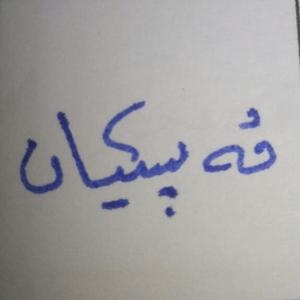 ڤەپسکیان